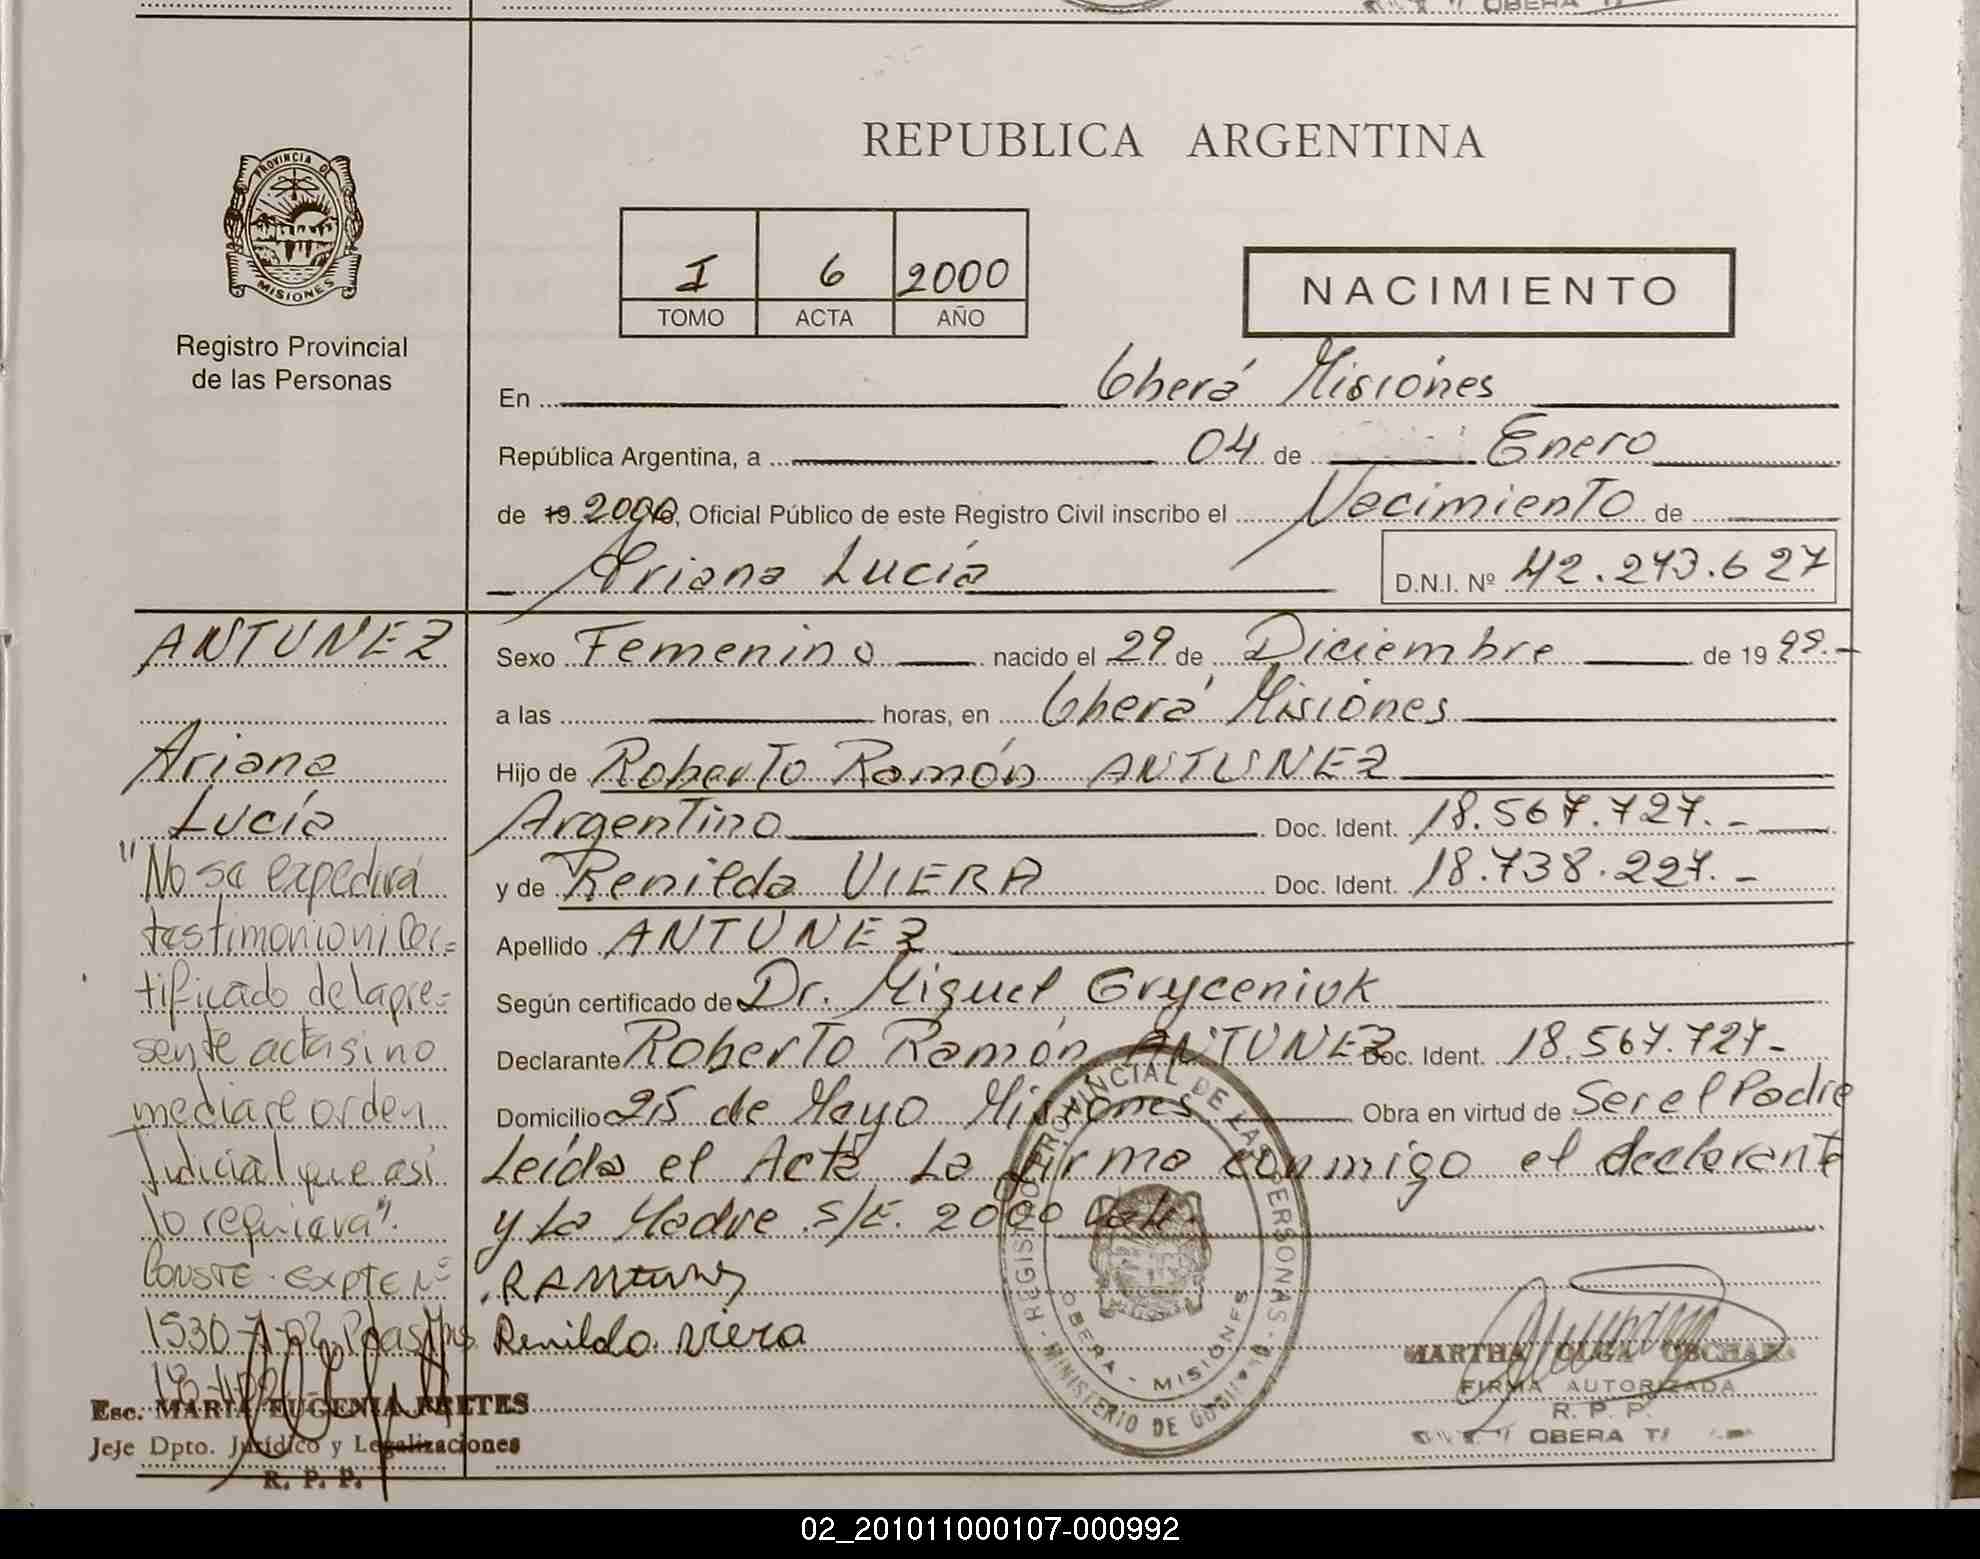 OBERA
PROVINCIA DE
MISIONES
Registro Provincial
de las Personas
REPUBLICA ARGENTINA
I 6 2000
TOMO ACTA AÑO
NACIMIENTO
En Oberá Misiones
República Argentina, a 04 de Enero
de 19 2000 yo, Oficial Público de este Registro Civil inscribo el Nacimiento de
Ariana Lucía D.N.I. Nº 42.273.627
ANTUNEZ
Ariana
Lucía
"No se expedirá
testimonio ni Cer=
tificado de la pre=
sente acta si no
mediare orden
Judicial que así
lo requiera".
CONSTE. EXPTE Nº
1530-A-02
Esc. MARIA EUGENIA FRETES
Jefe Dpto. Jurídico y Legalizaciones
R. P. P.
Sexo Femenino nacido el 29 de Diciembre de 19 99.-
a las horas, en Oberá Misiones
Hijo de Roberto Ramón ANTUNEZ
Argentino Doc. Ident. 18.567.727.-
y de Renilda VIERA Doc. Ident. 18.738.227.-
Apellido ANTUNEZ
Según certificado de Dr. Miguel Gryceniuk
Declarante Roberto Ramón ANTUNEZ Doc. Ident. 18.567.727-
Domicilio 25 de Mayo Misiones Obra en virtud de Ser el Padre
Leída el Acta La firma conmigo el declarante
y La Madre S/E. 2000 Vale.
R Antunez
Renilda Viera
REGISTRO PROVINCIAL DE LAS PERSONAS - MINISTERIO DE GOBIERNO
OBERA - MISIONES
MARTHA OLGA
FIRMA AUTORIZADA
R. P. P.
OBERA
02_201011000107-000992